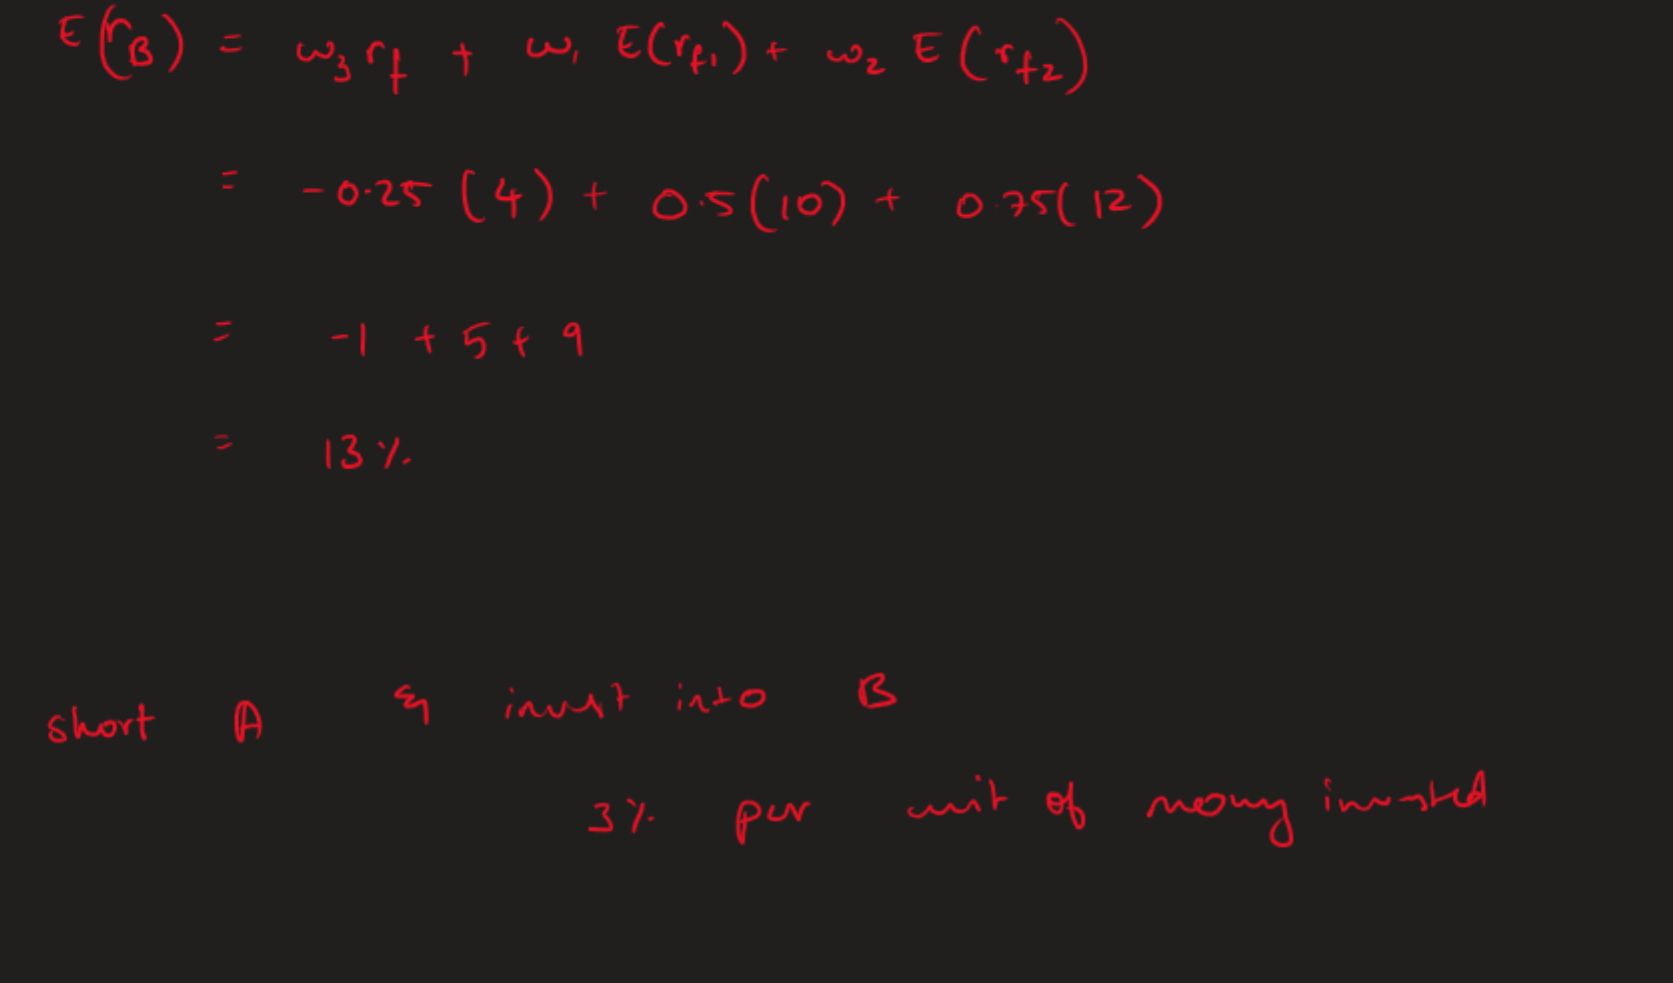 E(r_B) = w_3 r_f + w_1 E(r_f1) + w_2 E(r_f2)
= -0.25 (4) + 0.5(10) + 0.75(12)
= -1 + 5 + 9
= 13%
short A & invest into B
3% per unit of meony invested